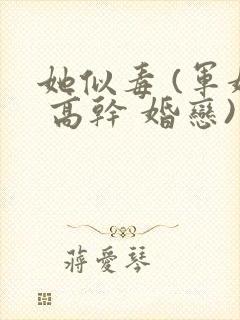 她似毒(軍婚
高幹 婚戀)
蔣愛琴